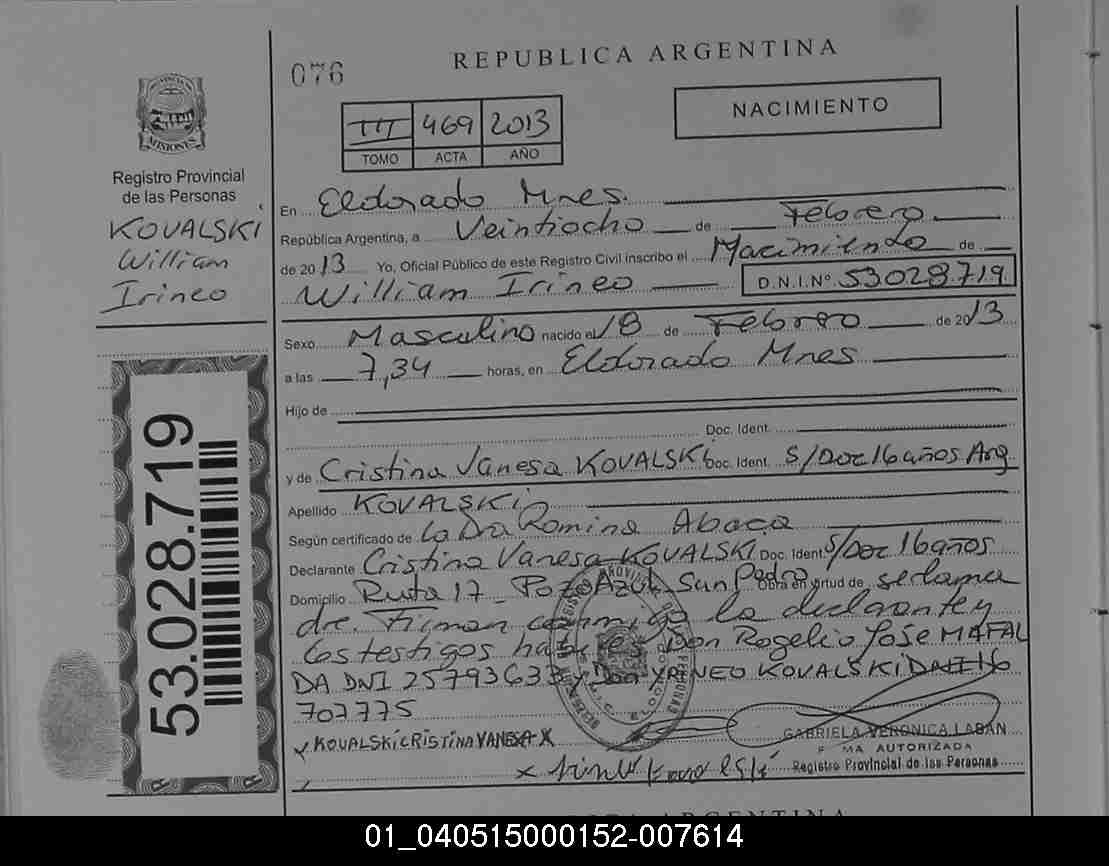 076
REPUBLICA ARGENTINA
NACIMIENTO
III 469 2013
TOMO ACTA AÑO
PROVINCIA DE
MISIONES
Registro Provincial
de las Personas
KOVALSKI
William
Irineo
53.028.719
En Eldorado Mnes.
República Argentina, a Veintiocho de Febrero
de 2013 Yo, Oficial Público de este Registro Civil inscribo el Nacimiento de
William Irineo D.N.I.Nº 53028719
Sexo Masculino nacido el 18 de Febrero de 2013
a las 7,34 horas, en Eldorado Mnes
Hijo de
Doc. Ident.
y de Cristina Vanesa KOVALSKI Doc. Ident. S/Doc 16 años Arg
Apellido KOVALSKI
Según certificado de La Dra Romina Abaca
Declarante Cristina Vanesa KOVALSKI Doc. Ident. S/Doc 16 años
Domicilio Ruta 17 - Pozo Azul - San Pedro Obra en virtud de ser la ma
dre. Firman conmigo la declarante y
los testigos habiles Don Rogelio José MAFAL
DA DNI 25793633 y Don YRINEO KOVALSKI DNI 16
707775
x KOVALSKI CRISTINA VANESA x
GABRIELA VERONICA LABAN
FIRMA AUTORIZADA
Registro Provincial de las Personas
REPUBLICA ARGENTINA
01_040515000152-007614